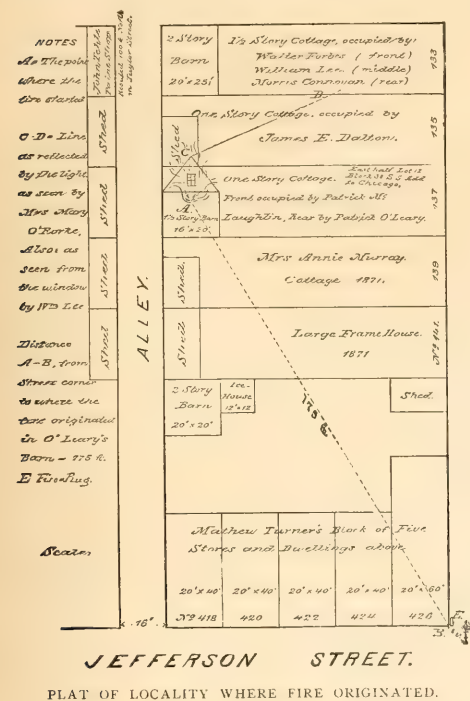 NOTES
A= The point
where the
fire started
C-D= Line
as reflected
by the light
as seen by
Mrs Mary
O'Rorke,
Also: as
seen from
the window
by Wm Lee
Distance
A-B, from
Street corner
to where the
fire originated
in O'Leary's
Barn - 775 ft.
E Fire Plug.
Scale,
Paint Shop
Shed
Shed
Shed
Shed
ALLEY.
16'
2 Story
Barn
20'x25'
1½ Story Cottage, occupied by:
Walter Forbes (front)
William Lee (middle)
Morris Connovan (rear)
133
D.
Shed
One Story Cottage, occupied by
James E. Dalton.
135
A.
1½ Story Barn
16'x20'
One Story Cottage.
East half Lot 12
to Chicago,
Front occupied by Patrick Mc
Laughlin, Rear by Patrick O'Leary.
137
Shed.
Mrs Annie Murray.
Cottage 1871.
139
Shed
Large Frame House.
1871
No. 141.
2 Story
Barn
20'x20'
Ice-
House
12'x12'
Shed.
Mathew Turner's Block of Five
Stores and Dwellings above
20'x40' 20'x40' 20'x40' 20'x40' 20'x60'
No 418 420 422 424 426
B.
E.
JEFFERSON STREET.
PLAT OF LOCALITY WHERE FIRE ORIGINATED.